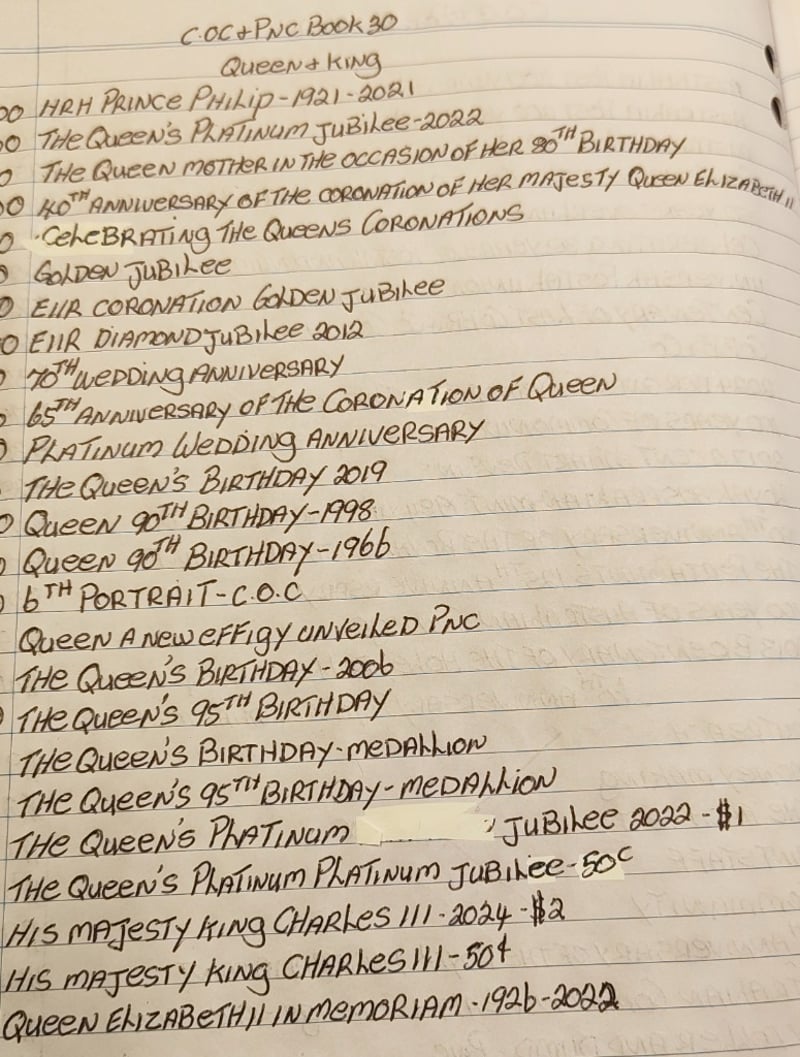 C.O.C + PNC Book 30
Queen + King
00 HRH Prince Philip - 1921 - 2021
0 The Queen's Platinum Jubilee - 2022
0 The Queen Mother in the occasion of her 80TH Birthday
00 40TH Anniversary of the Coronation of Her Majesty Queen Elizabeth II
0 Celebrating the Queens Coronations
0 Golden Jubilee
0 EIIR Coronation Golden Jubilee
0 EIIR Diamond Jubilee 2012
70TH Wedding Anniversary
65TH Anniversary of the Coronation of Queen
0 Platinum Wedding Anniversary
The Queen's Birthday 2019
0 Queen 90TH Birthday - 1998
0 Queen 90TH Birthday - 1966
0 6TH Portrait - C.O.C
Queen A new effigy unveiled PNC
The Queen's Birthday - 2006
0 The Queen's 95TH Birthday
The Queen's Birthday - Medallion
The Queen's 95TH Birthday - Medallion
The Queen's Platinum Jubilee 2022 - $1
The Queen's Platinum Platinum Jubilee - 50c
His Majesty King Charles III - 2024 - $2
His Majesty King Charles III - 50¢
Queen Elizabeth II In Memoriam - 1926 - 2022